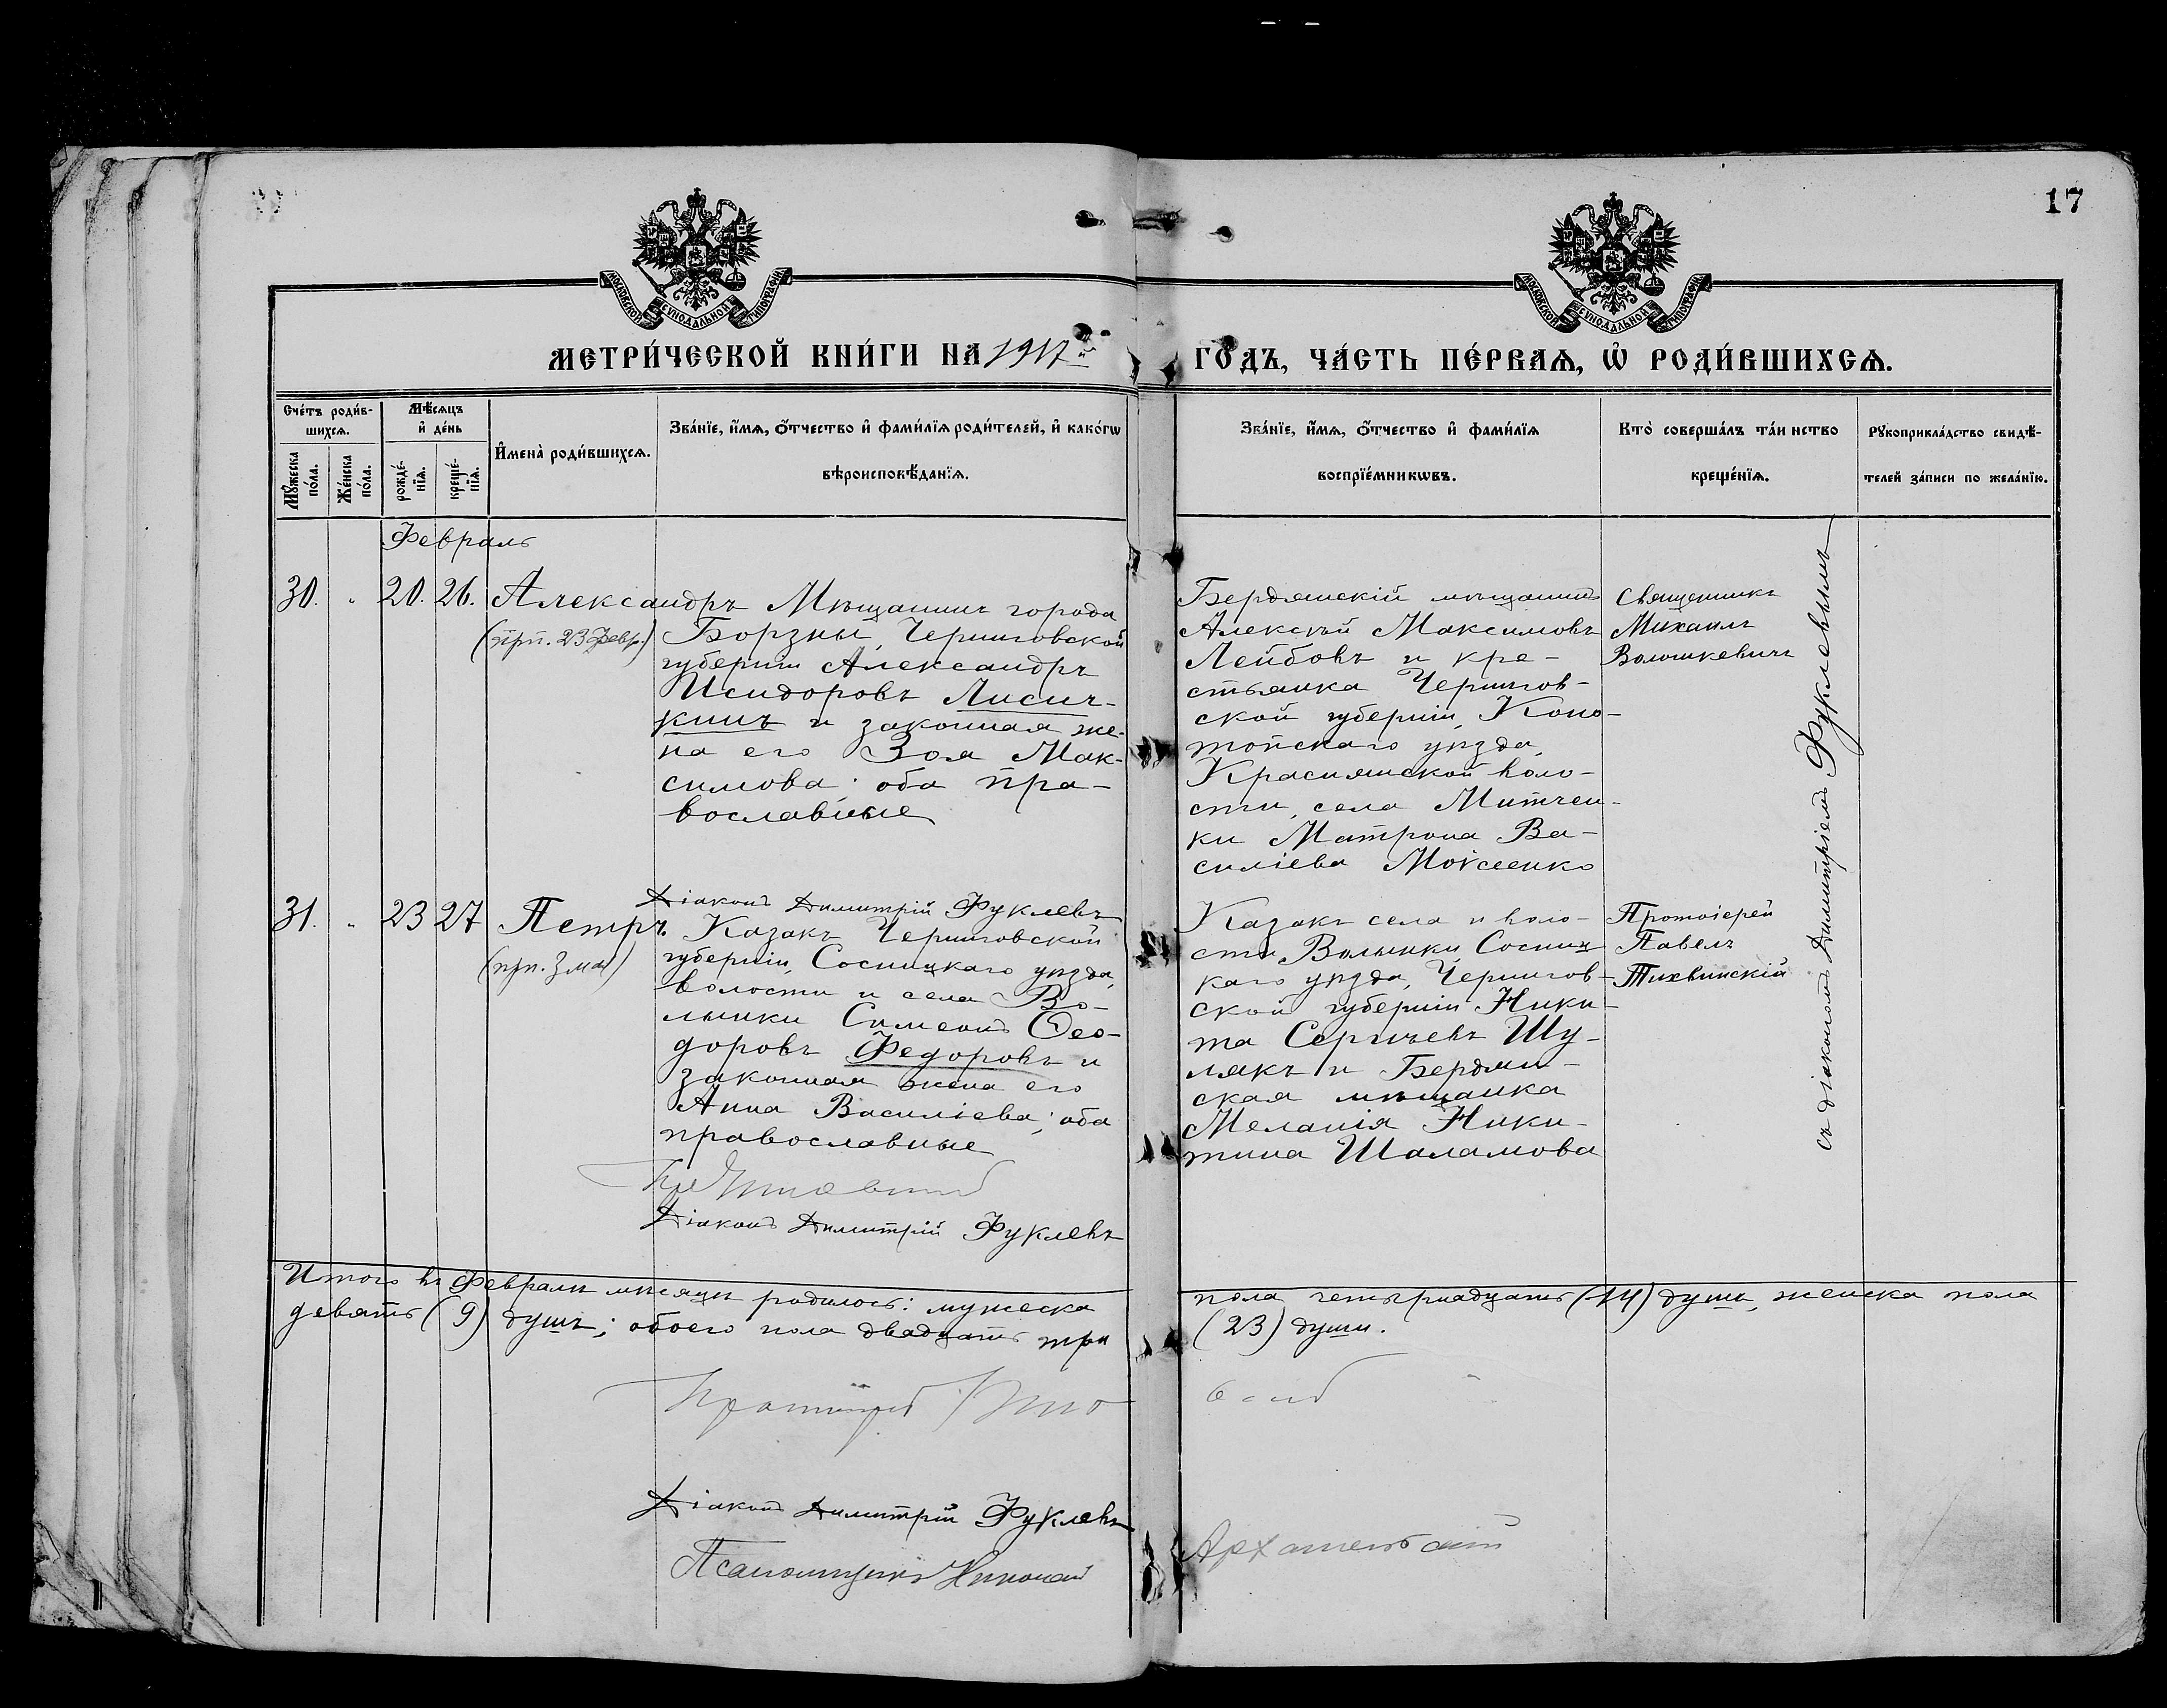 17
МОСКОВСКОЙ СѴНОДАЛЬНОЙ ТИПОГРАФІИ
МОСКОВСКОЙ СѴНОДАЛЬНОЙ ТИПОГРАФІИ
МЕТРИ́ЧЕСКОЙ КНИ́ГИ НА 1917й ГО́ДЪ, ЧА́СТЬ ПЕ́РВАѦ, Ѡ҆ РОДИ́ВШИХСѦ.
Сче́тъ роди́в-
шихсѧ.
Мѣ́сѧцъ
и҆ де́нь
Мꙋ́жеска
по́ла.
Же́нска
по́ла.
рожде́-
нїѧ.
креще́-
нїѧ.
И҆мена̀ роди́вшихсѧ.
Зва́нїе, и҆́мѧ, ѻ҆́тчество и҆ фами́лїѧ роди́телей, и҆ како́гѡ
вѣроисповѣ́данїѧ.
Зва́нїе, и҆́мѧ, ѻ҆́тчество и҆ фами́лїѧ
воспрїе́мникѡвъ.
Кто̀ соверша́лъ та́инство
креще́нїѧ.
Рꙋкоприкла́дство свидѣ́-
телей за́писи по жела́нїю.
Февраль
30. " 20. 26. Александръ
(прп. 23 Февр.)
Мѣщанинъ города
Борзны, Черниговской
губерніи Александръ
Исидоровъ Лисич-
кинъ и законная же-
на его Зоя Мак-
симова; оба пра-
вославные
Бердянскій мѣщанинъ
Алексѣй Максимовъ
Лейбовъ и кре-
стьянка Чернигов-
ской губерніи, Коно-
топскаго уѣзда,
Краснянской воло-
сти, села Митчен-
ки Матрона Ва-
силіева Моисеенко
Священникъ
Михаилъ
Волошкевичъ
съ діакономъ Димитріемъ Фуклевымъ
Діаконъ Димитрій Фуклевъ
31. " 23 27 Петръ.
(прп. 3 мая)
Казакъ Черниговской
губерніи, Сосницкаго уѣзда,
волости и села Во-
лынки Симеонъ Ѳео-
доровъ Федоровъ и
законная жена его
Анна Василіева; оба
православные
Казакъ села и воло-
сти Волынки, Сосниц-
каго уѣзда, Чернигов-
ской губерніи Ники-
та Сергіевъ Шу-
лякъ и Бердян-
ская мѣщанка
Меланія Ники-
тина Шаламова
Протоіерей
Павелъ
Тихвинскій
Діаконъ Димитрій Фуклевъ
Итого въ Февралѣ мѣсяцѣ родилось: мужеска пола четырнадцать (14) душъ, женска пола
девять (9) душъ; обоего пола двадцать три (23) души.
Протоіерей
Діаконъ Димитрій Фуклевъ
Псаломщикъ Николай Архангельскій